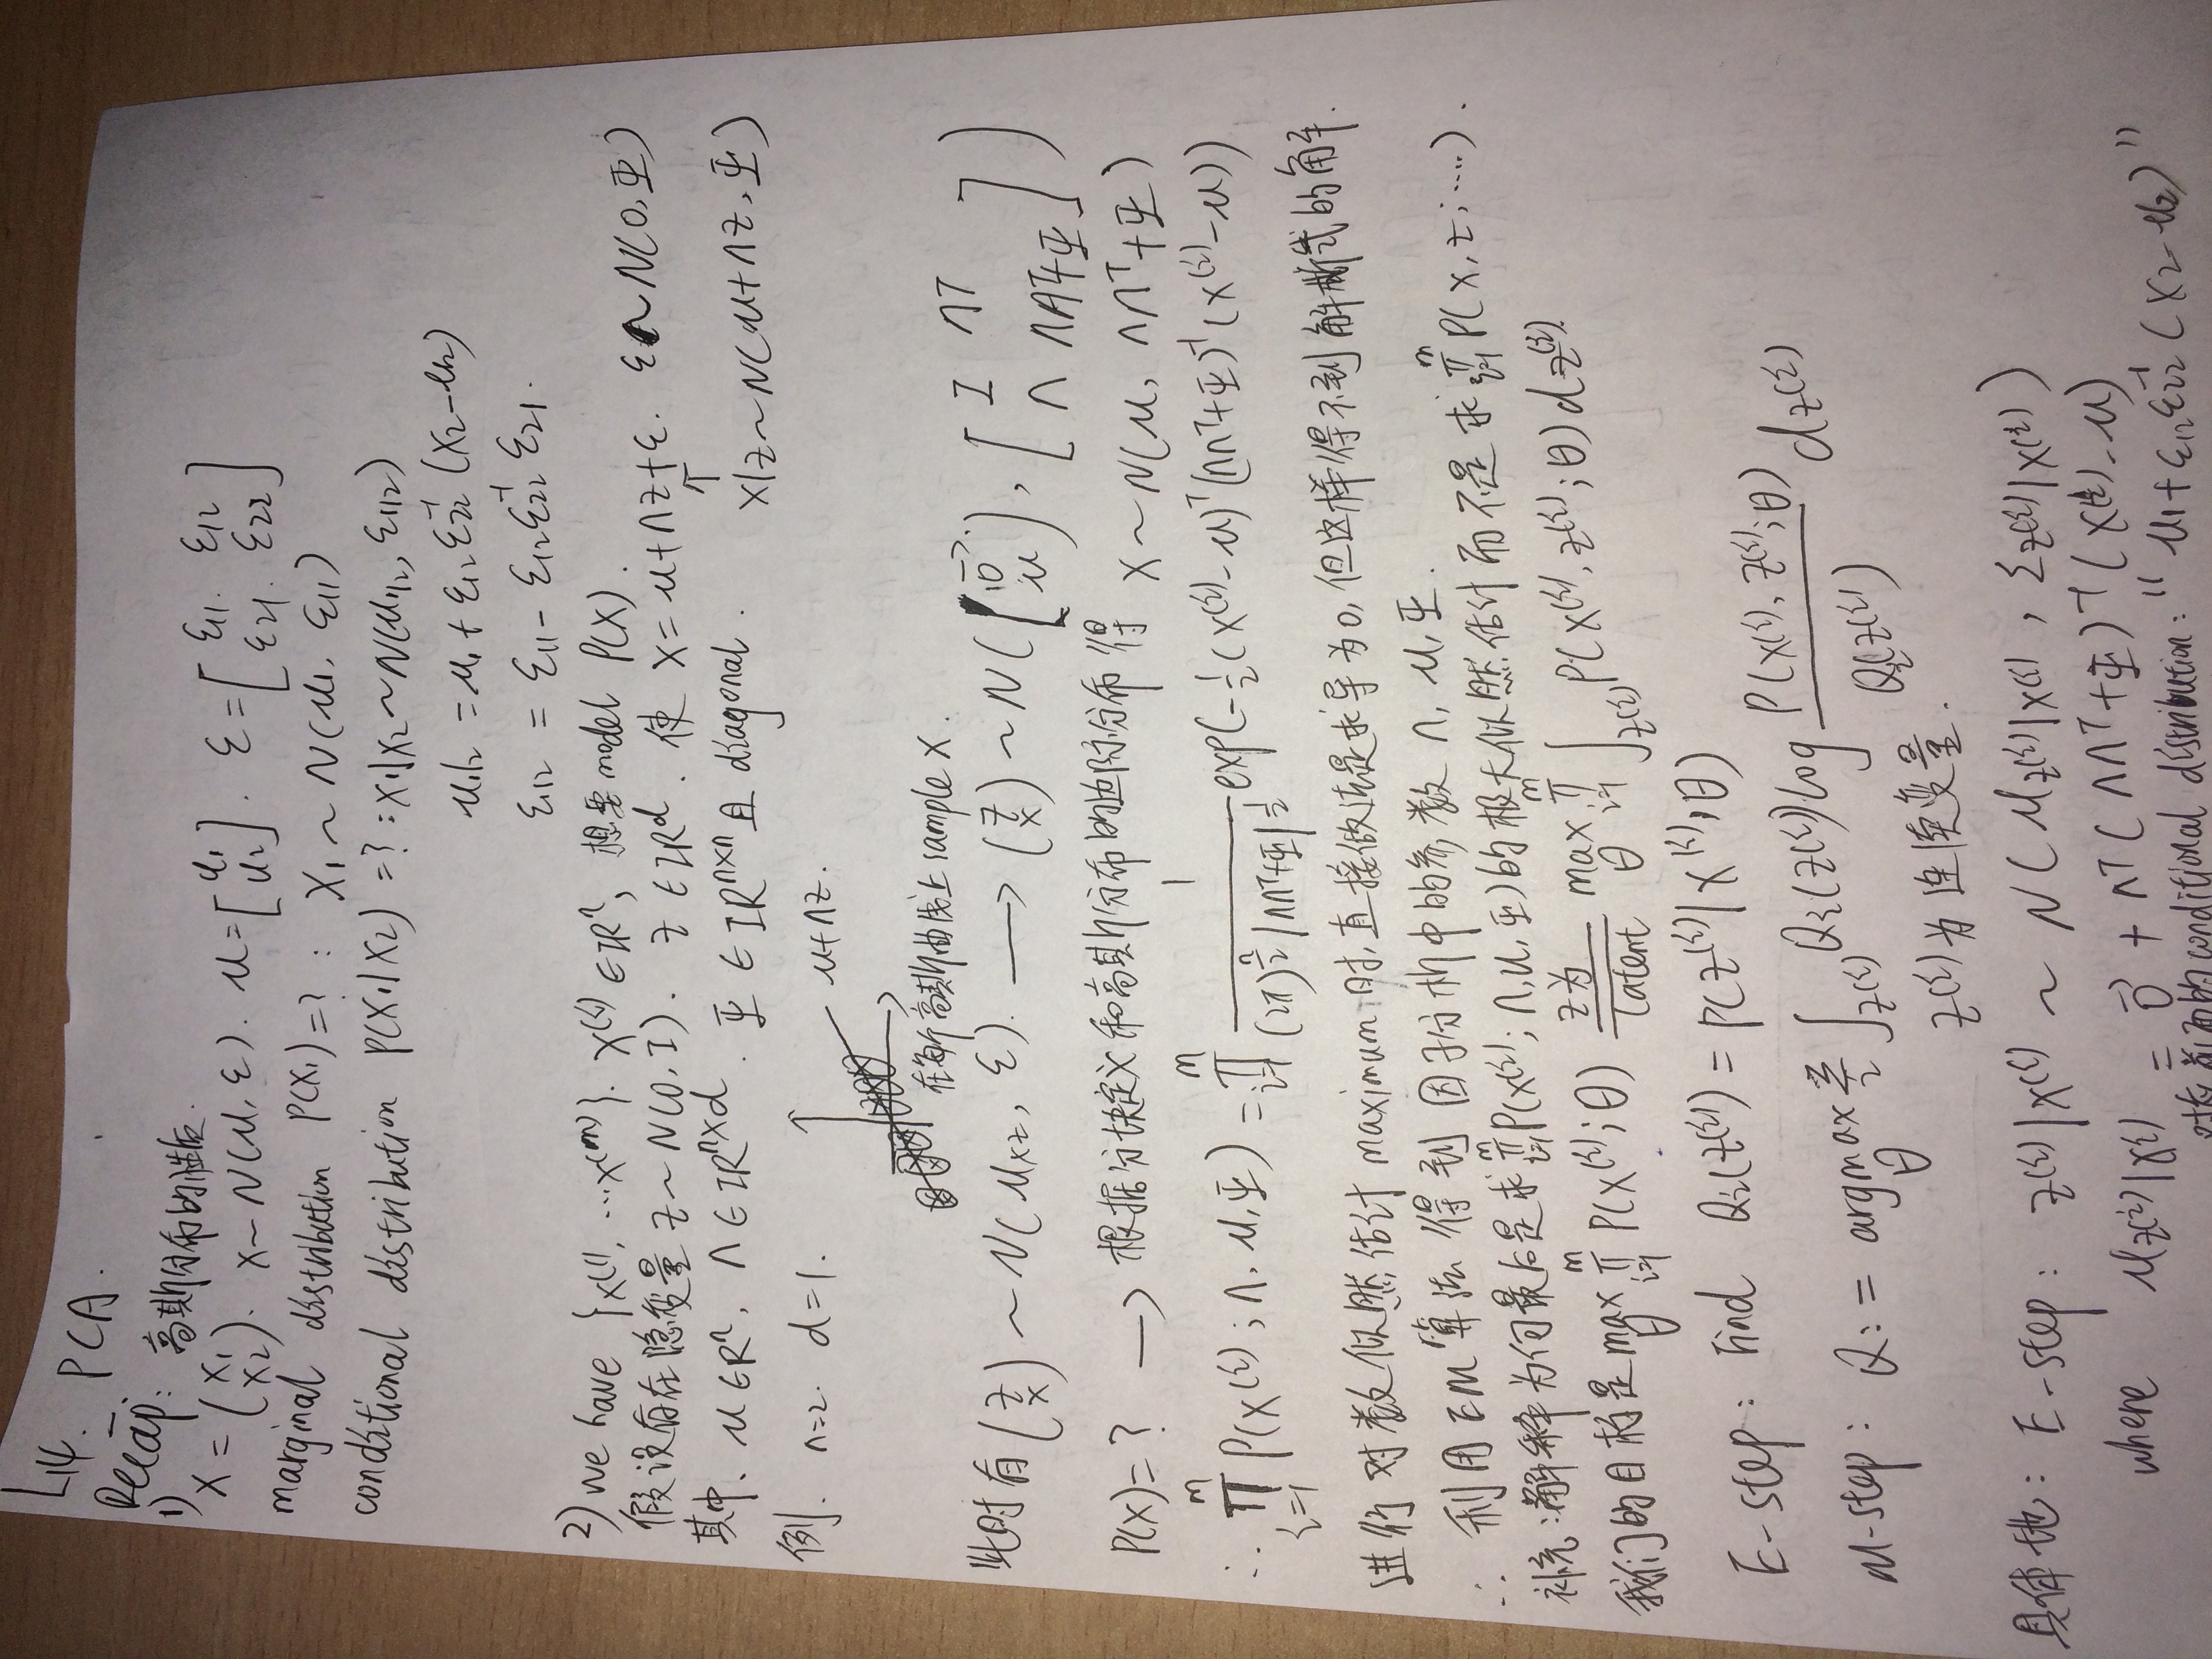 L14. PCA.
Recap: 高斯分布的性质.
1) X = (x₁ x₂). x ~ N(μ, Σ). μ = [μ₁ μ₂]. Σ = [Σ₁₁. Σ₁₂ Σ₂₁. Σ₂₂]
marginal distribution P(x₁)=? : X₁ ~ N(μ₁, Σ₁₁)
conditional distribution P(X₁|X₂) =? : x₁|x₂ ~ N(μ₁|₂, Σ₁|₂)
μ₁|₂ = μ₁ + Σ₁₂Σ₂₂⁻¹(X₂-μ₂)
Σ₁|₂ = Σ₁₁ - Σ₁₂Σ₂₂⁻¹Σ₂₁.
2) we have {x⁽¹⁾, ...x⁽ᵐ⁾}. x⁽ⁱ⁾ ∈ ℝⁿ, 想要model P(X).
假设存在隐变量 z ~ N(0, I). z ∈ ℝᵈ. 使 x = μ+Λz+ε. ε ~ N(0, Ψ)
其中. μ ∈ ℝⁿ, Λ ∈ ℝⁿˣᵈ. Ψ ∈ ℝⁿˣⁿ 且 diagonal. ↑ x|z ~ N(μ+Λz, Ψ)
例. n=2. d=1. μ+Λz.
在每个高斯曲线上 sample x.
此时有 (z x) ~ N(μxz, Σ). → (z x) ~ N([0⃗ μ], [I Λᵀ Λ ΛΛᵀ+Ψ])
P(X)=? → 根据分块定义和高斯分布的边际分布得 X ~ N(μ, ΛΛᵀ+Ψ)
∴ ∏ᵢ₌₁ᵐ P(x⁽ⁱ⁾; Λ, μ, Ψ) = ∏ᵢ₌₁ᵐ 1/((2π)^(n/2) |ΛΛᵀ+Ψ|^(1/2)) exp(-½(x⁽ⁱ⁾-μ)ᵀ(ΛΛᵀ+Ψ)⁻¹(x⁽ⁱ⁾-μ))
进行对数似然估计 maximum 时, 直接做法是求导为0, 但这样得不到解析式的解.
∴ 利用EM算法得到因子分析中的参数 Λ, μ, Ψ.
补充: 解释为何最后是求 ∏ᵢ₌₁ᵐ P(x⁽ⁱ⁾; Λ, μ, Ψ) 的极大似然估计而不是求 ∏ᵢ₌₁ᵐ P(x, z; ....).
我们的目标是 max_θ ∏ᵢ₌₁ᵐ P(x⁽ⁱ⁾; θ) =(z为 latent) max_θ ∏ᵢ₌₁ᵐ ∫_z⁽ⁱ⁾ P(x⁽ⁱ⁾, z⁽ⁱ⁾; θ) dz⁽ⁱ⁾.
E-step: Find Qᵢ(z⁽ⁱ⁾) = P(z⁽ⁱ⁾|x⁽ⁱ⁾; θ)
M-step: Q := argmax_θ Σᵢ ∫_z⁽ⁱ⁾ Qᵢ(z⁽ⁱ⁾) log P(x⁽ⁱ⁾, z⁽ⁱ⁾; θ)/Qᵢ(z⁽ⁱ⁾) dz⁽ⁱ⁾
z⁽ⁱ⁾为连续变量.
具体地: E-step: z⁽ⁱ⁾|x⁽ⁱ⁾ ~ N(μz⁽ⁱ⁾|x⁽ⁱ⁾, Σz⁽ⁱ⁾|x⁽ⁱ⁾)
where μz⁽ⁱ⁾|x⁽ⁱ⁾ = 0⃗ + Λᵀ(ΛΛᵀ+Ψ)⁻¹(x⁽ⁱ⁾-μ)
对应前面的 conditional distribution: "μ₁+Σ₁₂Σ₂₂⁻¹(X₂-μ₂)"